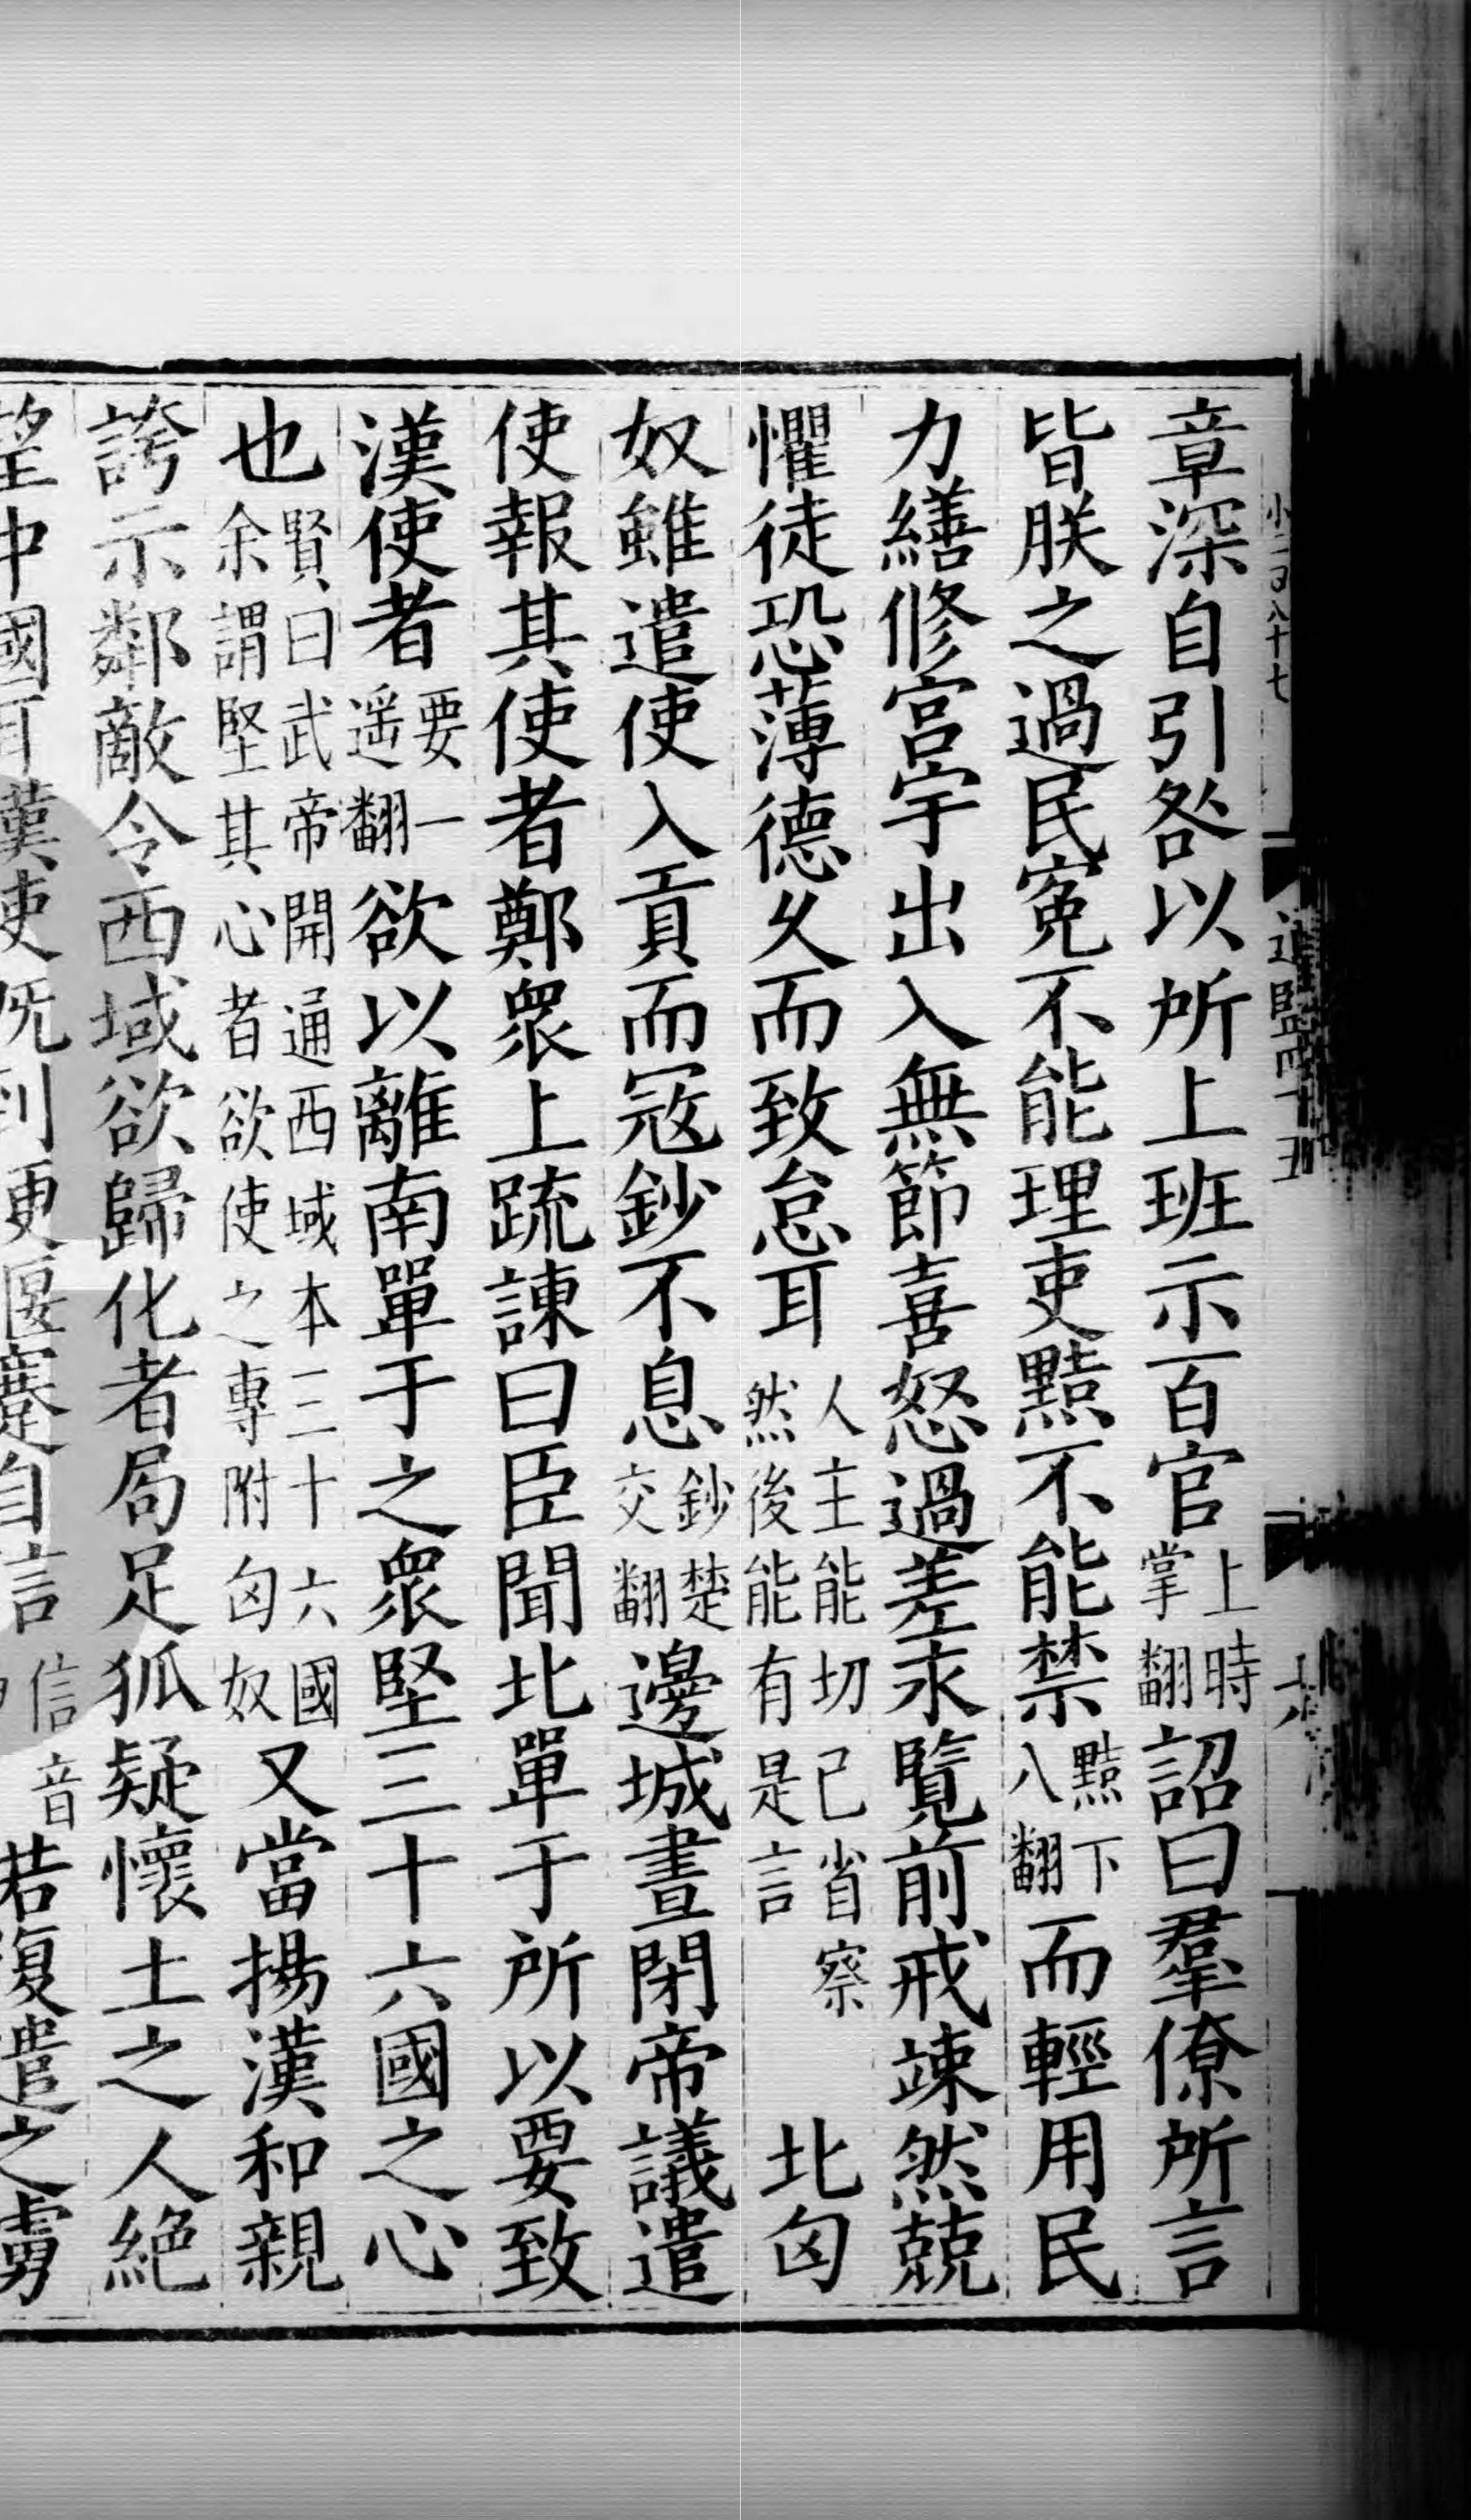 小二百八十七
通鑑四十五
十六
章深自引咎以所上班示百官上時掌翻詔曰羣僚所言
皆朕之過民寃不能理吏黠不能禁黠下八翻而輕用民
力繕修宮宇出入無節喜怒過差永覽前戒竦然兢
懼徒恐薄德久而致怠耳人主能切己省察然後能有是言北匈
奴雖遣使入貢而寇鈔不息鈔楚交翻邊城晝閉帝議遣
使報其使者鄭衆上疏諫曰臣聞北單于所以要致
漢使者要一遥翻欲以離南單于之衆堅三十六國之心
也賢曰武帝開通西域本三十六國余謂堅其心者欲使之專附匈奴又當揚漢和親
誇示鄰敵令西域欲歸化者局足狐疑懷土之人絶
望中國耳漢使既到更偃蹇自言信音若復遣之虜